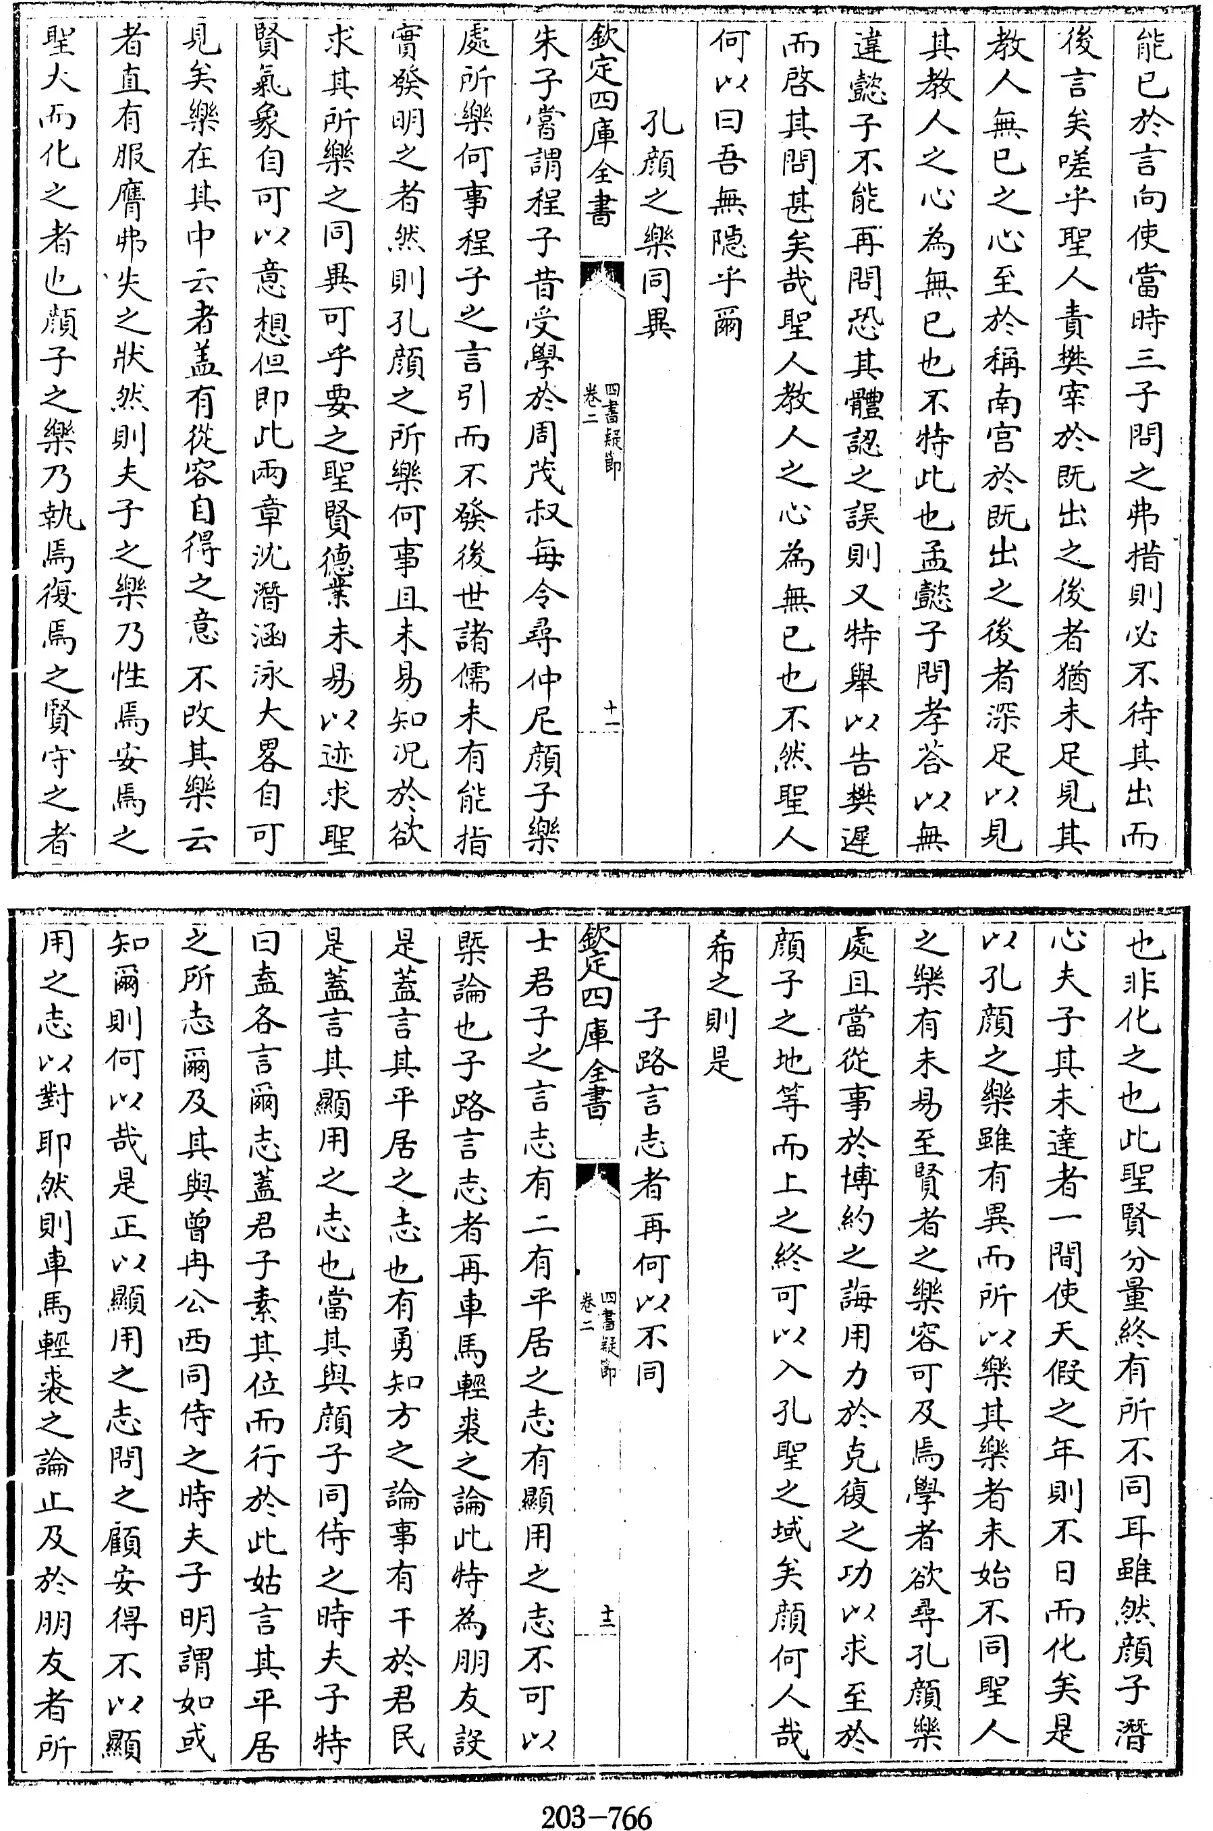 能已於言向使當時三子問之弗措則必不待其出而
後言矣嗟乎聖人責樊宰於既出之後者猶未足見其
教人無已之心至於稱南宫於既出之後者深足以見
其教人之心為無已也不特此也孟懿子問孝荅以無
違懿子不能再問恐其體認之誤則又特舉以告樊遲
而啓其問甚矣哉聖人教人之心為無已也不然聖人
何以曰吾無隠乎爾
孔顔之樂同異
欽定四庫全書
四書疑節
卷二
十一
朱子嘗謂程子昔受學於周茂叔每令尋仲尼顔子樂
處所樂何事程子之言引而不發後世諸儒未有能指
實發明之者然則孔顔之所樂何事且未易知况於欲
求其所樂之同異可乎要之聖賢德業未易以迹求聖
賢氣象自可以意想但即此兩章沈潛涵泳大畧自可
見矣樂在其中云者盖有從容自得之意不改其樂云
者直有服膺弗失之狀然則夫子之樂乃性焉安焉之
聖大而化之者也顔子之樂乃執焉復焉之賢守之者
也非化之也此聖賢分量終有所不同耳雖然顔子潛
心夫子其未達者一間使天假之年則不日而化矣是
以孔顔之樂雖有異而所以樂其樂者未始不同聖人
之樂有未易至賢者之樂容可及焉學者欲尋孔顔樂
處且當從事於博約之誨用力於克復之功以求至於
顔子之地等而上之終可以入孔聖之域矣顔何人哉
希之則是
子路言志者再何以不同
欽定四庫全書
四書疑節
卷二
十二
士君子之言志有二有平居之志有顯用之志不可以
槩論也子路言志者再車馬輕裘之論此特為朋友設
是蓋言其平居之志也有勇知方之論事有干於君民
是蓋言其顯用之志也當其與顔子同侍之時夫子特
曰盍各言爾志蓋君子素其位而行於此姑言其平居
之所志爾及其與曾冉公西同侍之時夫子明謂如或
知爾則何以哉是正以顯用之志問之顧安得不以顯
用之志以對耶然則車馬輕裘之論止及於朋友者所
203-766